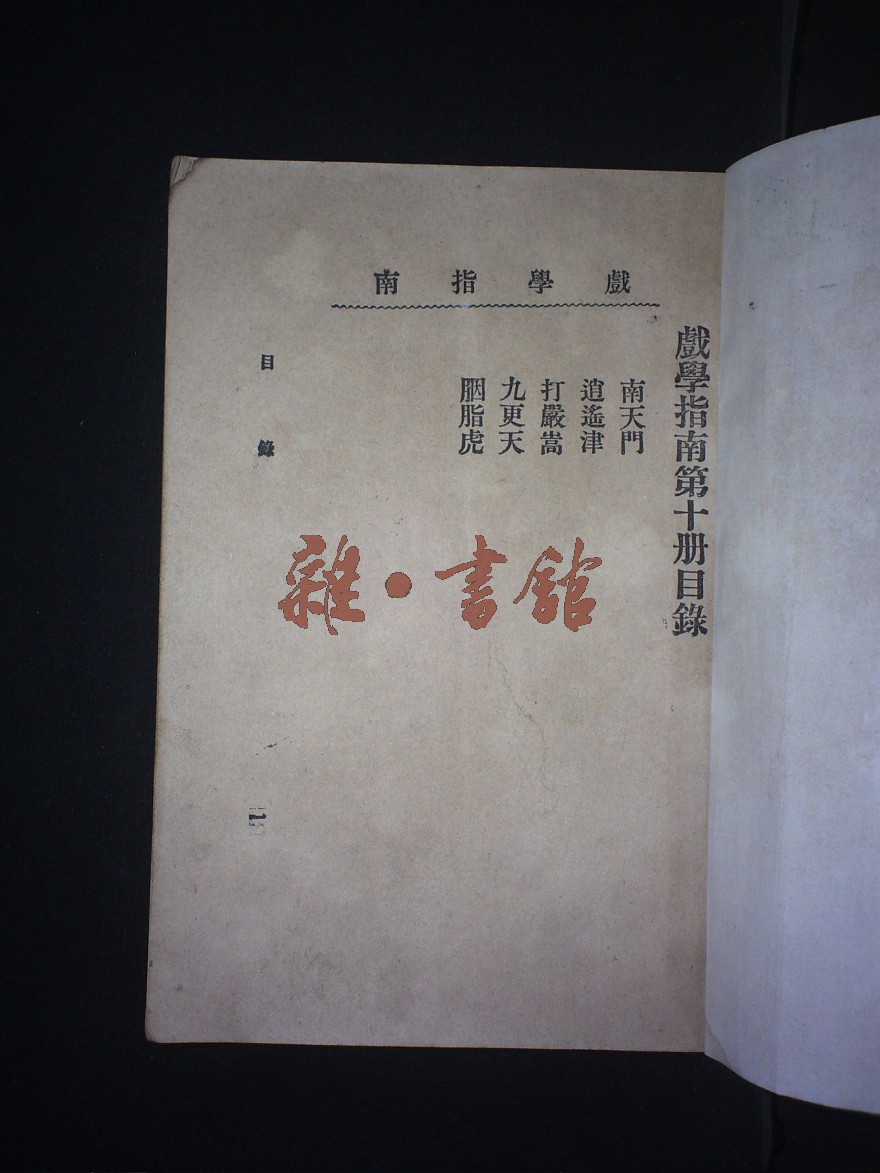 戲學指南第十册目錄
戲學指南
南天門
逍遙津
打嚴嵩
九更天
胭脂虎
目錄
雜·書館